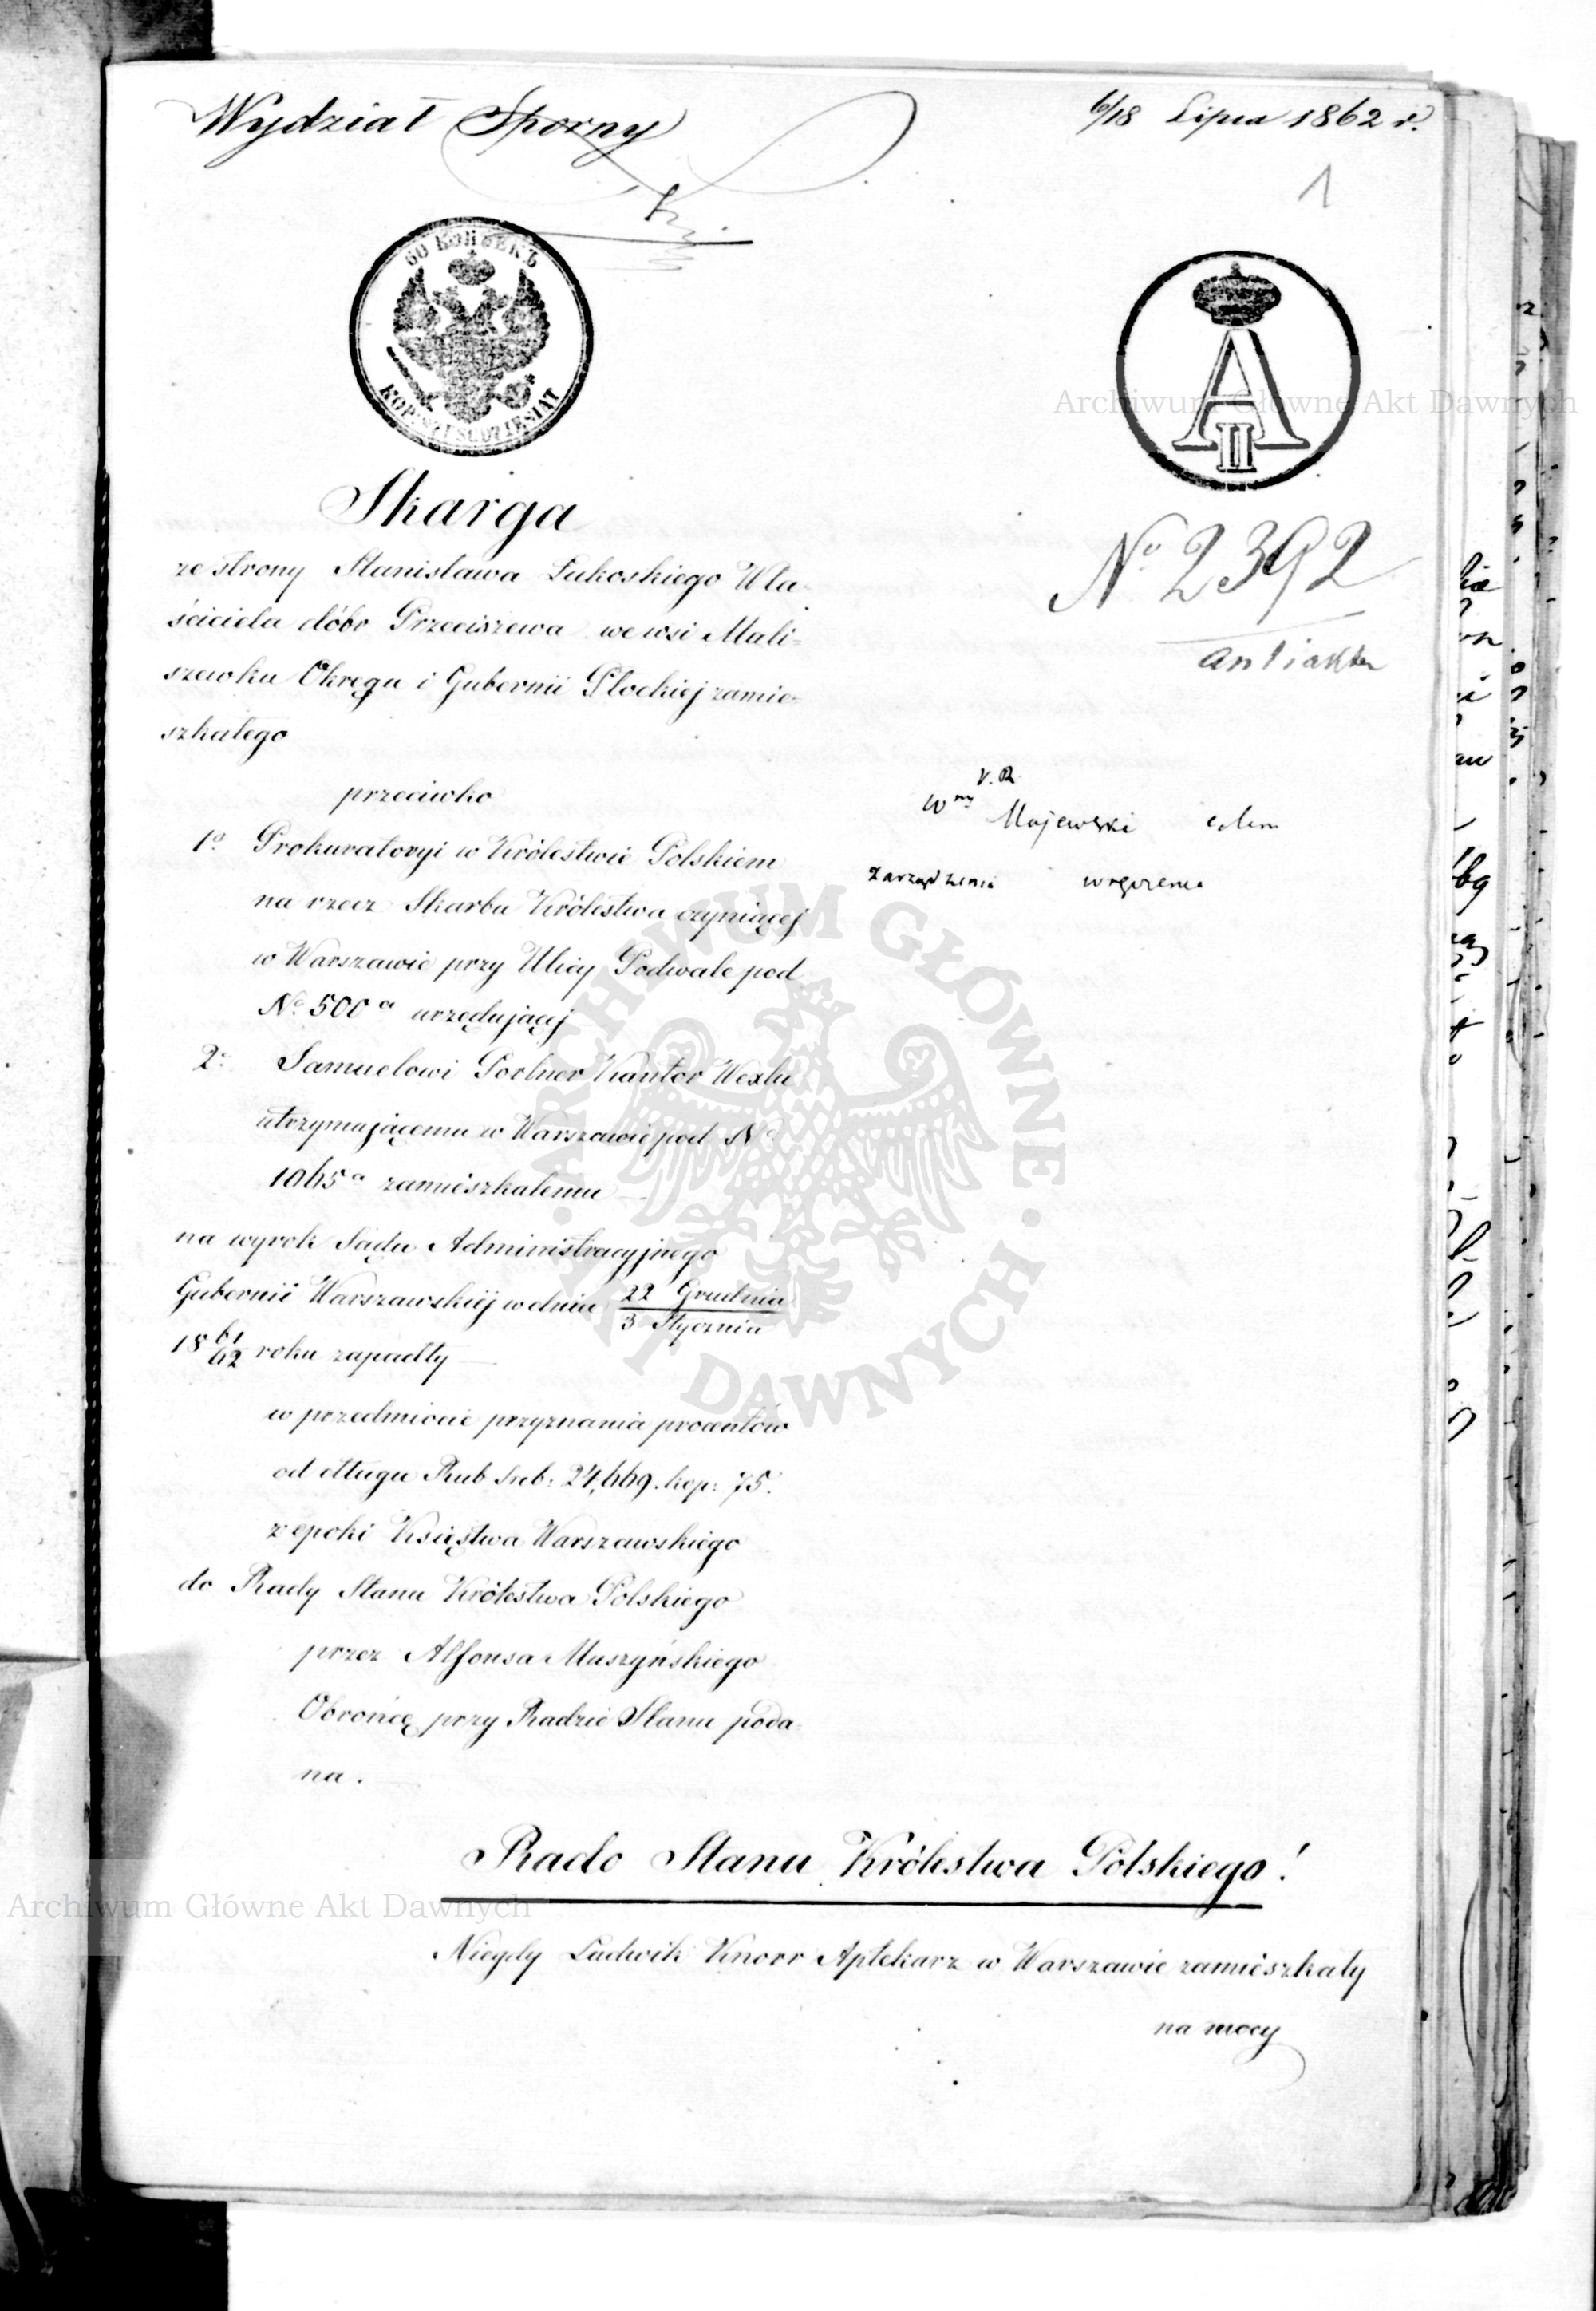 Wydział Sporny
6/18 Lipca 1862 r.
1
60 КОПѢЕКЪ
KOPIEJEK SZEŚĆDZIESIĄT
A II
Skarga
No 2392
ze strony Stanisława Łukoskiego Wła-
ściciela dóbr Przeciszewa we wsi Mali-
szewku Okręgu i Gubernii Płockiej zamie-
szkałego
przeciwko
V. R.
Wny Majewski celem
zarządzenia wręczenia
1o Prokuratoryi w Królestwie Polskiem
na rzecz Skarbu Królestwa czyniącej
w Warszawie przy Ulicy Podwale pod
No 500 a urzędującej
2o Samuelowi Portner Kantor Wexlu
utrzymującemu w Warszawie pod No
1065 a zamieszkałemu
na wyrok Sądu Administracyjnego
Gubernii Warszawskiej w dniu 22 Grudnia / 3 Stycznia
18 61/62 roku zapadły
w przedmiocie przyznania procentów
od długu Rub Sreb: 24,669. kop: 75.
z epoki Księstwa Warszawskiego
do Rady Stanu Królestwa Polskiego
przez Alfonsa Muszyńskiego
Obrońcę przy Radzie Stanu poda-
na.
Rado Stanu Królestwa Polskiego!
Niegdy Ludwik Knorr Aptekarz w Warszawie zamieszkały
na mocy
Archiwum Główne Akt Dawnych
Archiwum Główne Akt Dawnych
ARCHIWUM GŁÓWNE AKT DAWNYCH